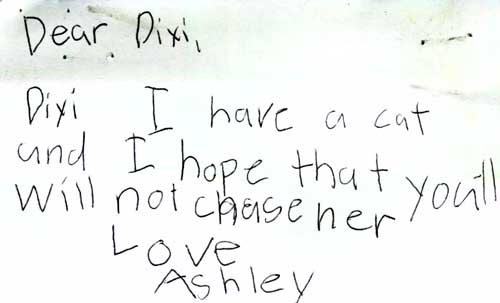 Dear Dixi,
Dixi I have a cat
and I hope that you'll
will not chase her
Love
Ashley